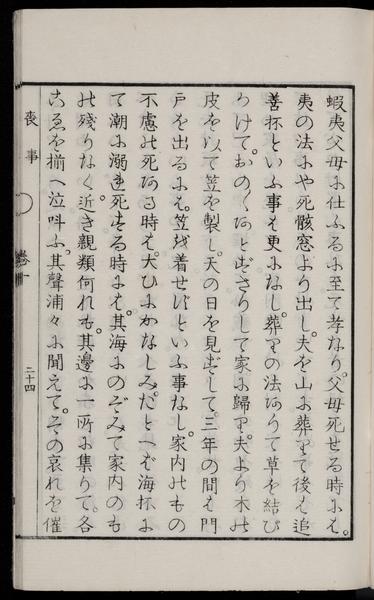 蝦夷父母に仕ふるに至て孝なり。父母死せる時にも。
夷の法にや死骸窓より出し。夫を山に葬りて後も追
善抔といふ事も更になし。葬りの法ありて草を結び
つけて。おの〳〵あとずさりして家に歸り。夫より木の
皮を以て笠を製し。天の日を見ずして。三年の間も門
戸を出るにも。笠を着せずといふ事なし。家内のもの
不慮の死ある時も。大ひにかなしみ。たとへば海抔に
て潮に溺れ死する時にも。其海にのぞみて家内のも
の殘りなく。近き親類何れも。其邊に一所に集りて。各
こゑを揃へ泣叫ふ。其聲浦々に聞えて。その哀れを催
喪事 卷一 二十四